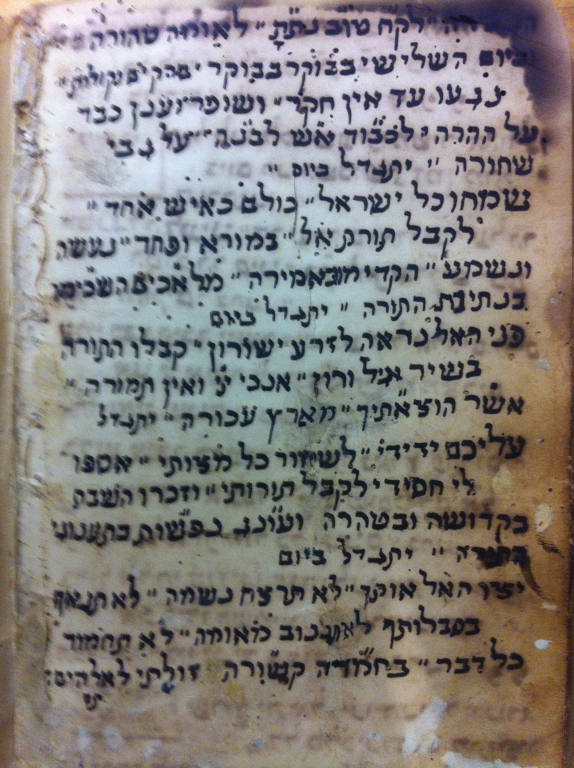 לקח טוב נתת״ לאומה טהורה״
וביום השלישי בבוקר בבוקר
נגעו עד אין חקר״ ושופר וענן כבד
על ההרה״ לכבוד אש לבנה״ על גבי
שחורה״ יתגדל ביום״
שמחו כל ישראל״ כולם כאיש אחד״
לקבל תורת אל״ במורא ופחד״ נעשה
ונשמע״ הקדימו באמירה״ מלאכים השכימו
בנתינת התורה״ יתגדל ביום
פני האל נראה לזרע ישורון״ קבלו התורה
בשיר גיל ורון״ אנכי יי ואין תמורה״
אשר הוצאתיך״ מארץ עכורה״ יתגדל
עליכם ידידי״ לשמור כל מצותי״ אספו
לי חסידי לקבל תורותי״ וזכרו השבת
בקדושה ובטהרה ועונג נפשות בתענוגי
יתגדל ביום
יצרו האל אותך״ לא תרצח נשמה״ לא תנאף
בסבלותך לא תגנוב מאומה״ לא תחמוד
כל דבר״ בחמודה קשורה זולתי לאלהים: